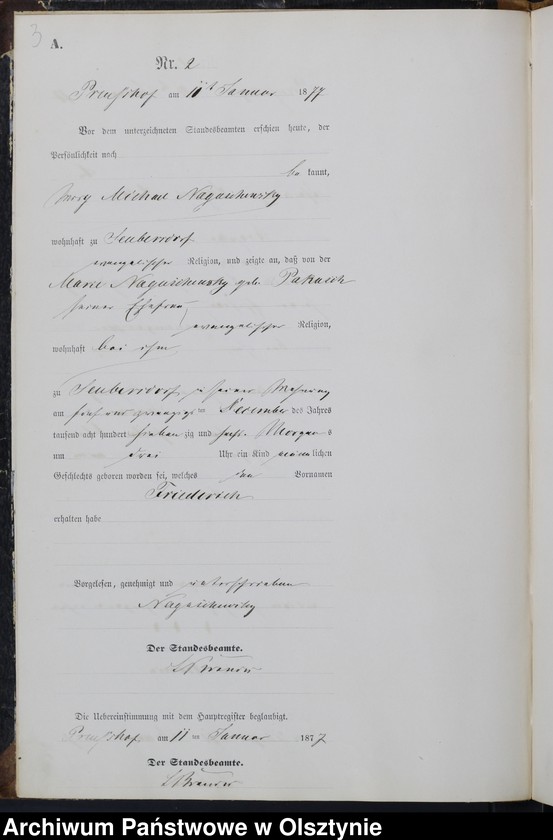 3
A.
Nr. 2
Preußhof am 11t Januar 1877
Vor dem unterzeichneten Standesbeamten erschien heute, der
Persönlichkeit nach
be kannt,
Michael Naguschewsky
wohnhaft zu Seubersdorf
evangelischer Religion, und zeigte an, daß von der
Marie Naguschewsky geb.
seiner Ehefrau
evangelischer Religion,
wohnhaft bei ihm
zu Seubersdorf in seiner Wohnung
am fünf und zwanzigs ten Dezember des Jahres
tausend acht hundert sieben zig und sechs Morgen s
um drei Uhr ein Kind männ lichen
Geschlechts geboren worden sei, welches den Vornamen
Friederich
erhalten habe
Vorgelesen, genehmigt und unterschrieben
Naguschewsky
Der Standesbeamte.
Die Uebereinstimmung mit dem Hauptregister beglaubigt.
Preußhof am 11 ten Januar 1877
Der Standesbeamte.
Archiwum Państwowe w Olsztynie